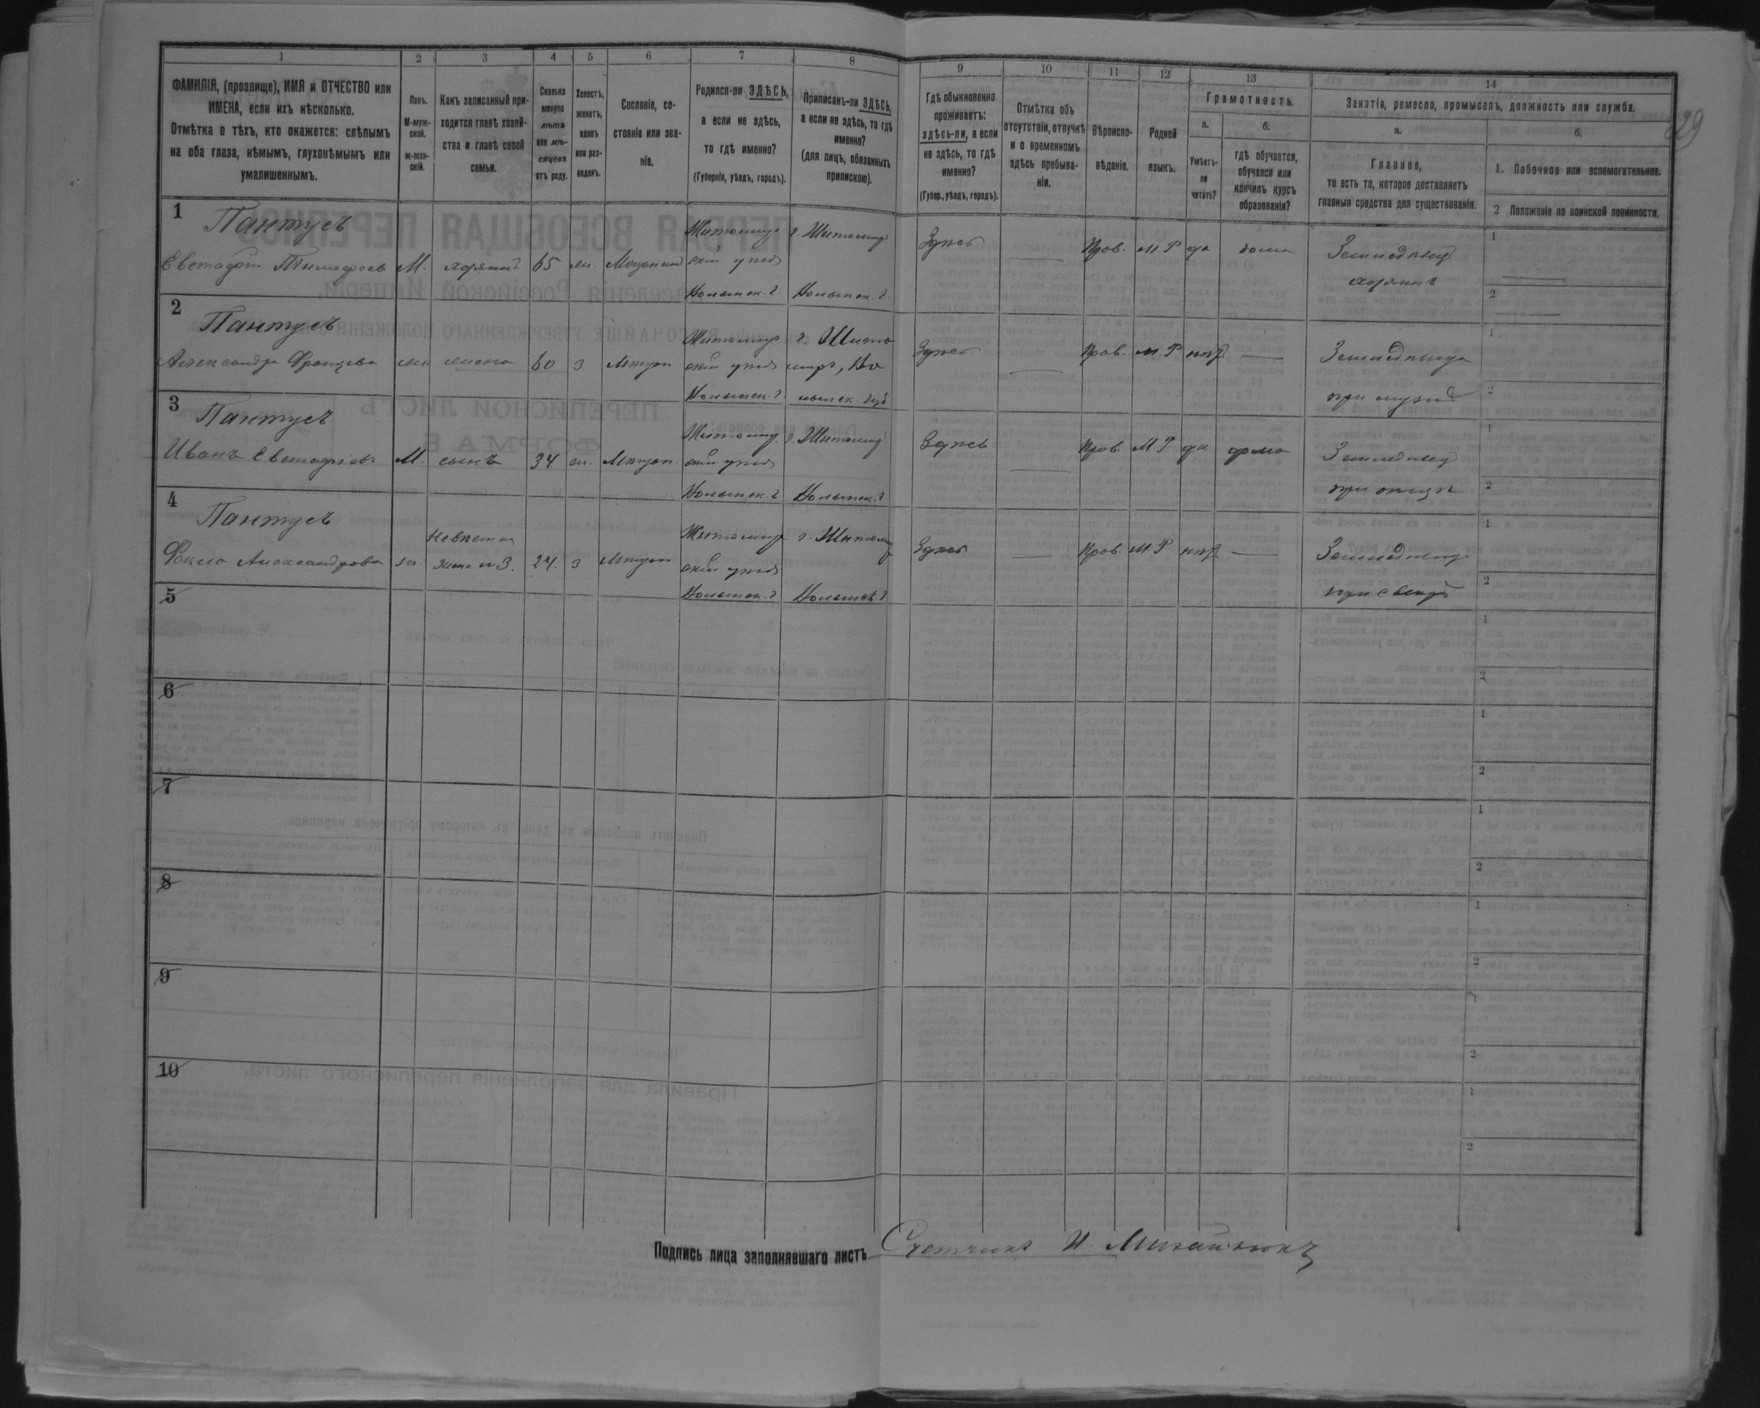 1 2 3 4 5 6 7 8 9 10 11 12 13 14
ФАМИЛІЯ, (прозвище), ИМЯ и ОТЧЕСТВО или
ИМЕНА, если ихъ нѣсколько.
Отмѣтка о тѣхъ, кто окажется: слѣпымъ
на оба глаза, нѣмымъ, глухонѣмымъ или
умалишеннымъ.
Полъ.
М-муж-
ской.
ж-жен-
скій.
Какъ записанный при-
ходится главѣ хозяй-
ства и главѣ своей
семьи.
Сколько
минуло
лѣтъ
или мѣ-
сяцевъ
отъ роду.
Холостъ,
женатъ,
вдовъ
или раз-
веденъ.
Сословіе, со-
стояніе или зва-
ніе.
Родился-ли ЗДѢСЬ,
а если не здѣсь,
то гдѣ именно?
(Губернія, уѣздъ, городъ).
Приписанъ-ли ЗДѢСЬ,
а если не здѣсь, то гдѣ
именно?
(для лицъ, обязанныхъ
припискою).
Гдѣ обыкновенно
проживаетъ:
здѣсь-ли, а если
не здѣсь, то гдѣ
именно?
(Губер., уѣздъ, городъ).
Отмѣтка объ
отсутствіи, отлучкѣ
и о временномъ
здѣсь пребыва-
ніи.
Вѣроиспо-
вѣданіе.
Родной
языкъ.
Грамотность.
а.
Умѣетъ-
ли
читать?
б.
гдѣ обучается,
обучался или
кончилъ курсъ
образованія?
Занятія, ремесло, промыселъ, должность или служба.
а.
Главное,
то есть то, которое доставляетъ
главныя средства для существованія.
б.
1. Побочное или вспомогательное.
2 Положеніе по воинской повинности.
29
1
Пантусъ
Евстафій Тимофеевъ М. хозяинъ 65 ж. Мещанинъ
Житомир
скій уѣздъ
Волынск. г.
г. Житомир
Волынск. г.
Здѣсь Прав. М Р да дома
Земледѣлец
хозяинъ
1
2
2
Пантусъ
Александра жн жена 60 з.
Житомир
скій уѣздъ
Волынск. г.
г. Жито
миръ, Во
лынск. губ
Здѣсь — Прав. М Р —
при мужѣ
1
2
3
Пантусъ
Иванъ Евстафіевъ М. сынъ 34
Житомир
скій уѣздъ
Волынск. г
г. Житомир
Волынск. г
Здѣсь — Прав. М Р да дома
Земледѣлец
при отцѣ
1
2
4
Пантусъ
Александрова жн
Невѣстка
жена №3. 24 з
Житомир
скій уѣздъ
Волынск. г
г. Житомир
Волынск. г
Здѣсь — Прав. М Р —
1
2
5
1
2
6
1
2
7
1
2
8
1
2
9
1
2
10
1
2
Подпись лица заполнявшаго листъ Счетчикъ И